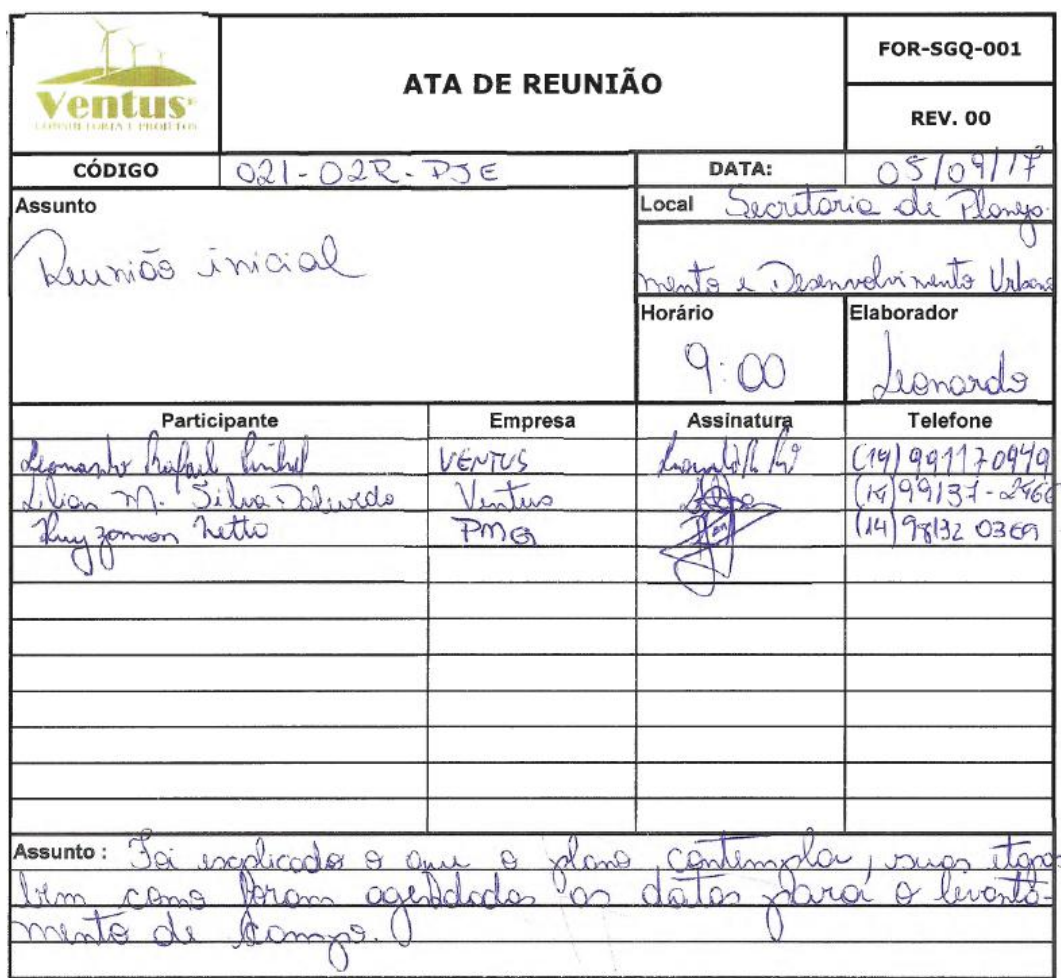 Ventus
CONSULTORIA E PROJETOS
ATA DE REUNIÃO
FOR-SGQ-001
REV. 00
CÓDIGO 021-02R-PJE
DATA: 05/09/17
Assunto
Reunião inicial
Local Secretaria de Planeja-
mento e Desenvolvimento Urbano
Horário
9:00
Elaborador
Leonardo
Participante Empresa Assinatura Telefone
Leonardo Rafael VENTUS (14) 991170949
Lilian M. Silva Ventus (14) 99137-2466
Ruy Netto (14) 98132 0369
Assunto : Foi explicado o que o plano contempla, suas etapas
bem como foram agendadas as datas para o levanta-
mento de campo.